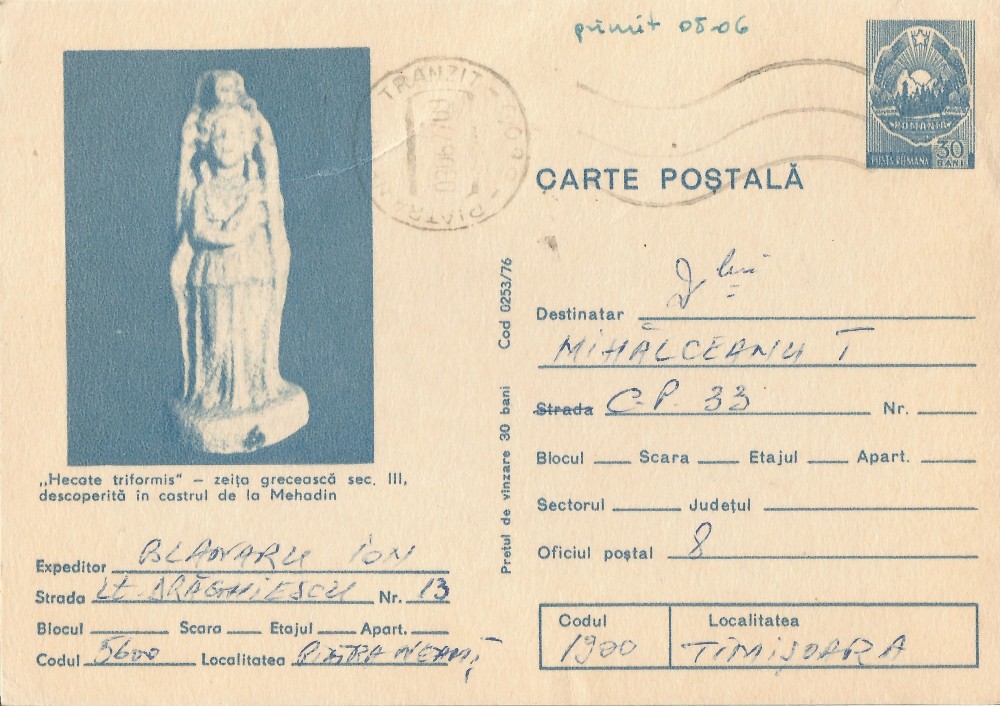 primit 05.06
ROMANIA
POSTA ROMANA 30 BANI
TRANZIT
PIATRA
CARTE POȘTALĂ
„Hecate triformis” – zeița grecească sec. III,
descoperită în castrul de la Mehadin
Expeditor BLANARU ION
Strada Lt. DRĂGHIESCU Nr. 13
Blocul Scara Etajul Apart.
Codul 5600 Localitatea PIATRA NEAMȚ
Prețul de vînzare 30 bani Cod 0253/76
Destinatar
MIHĂLCEANU T
Strada C.P. 33 Nr.
Blocul Scara Etajul Apart.
Sectorul Județul
Oficiul poștal 8
Codul Localitatea
1900 TIMIȘOARA